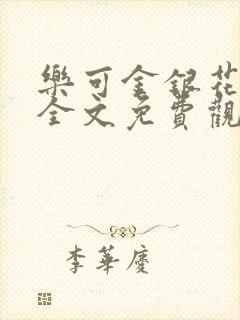 樂可金銀花
全文免費觀
李華慶